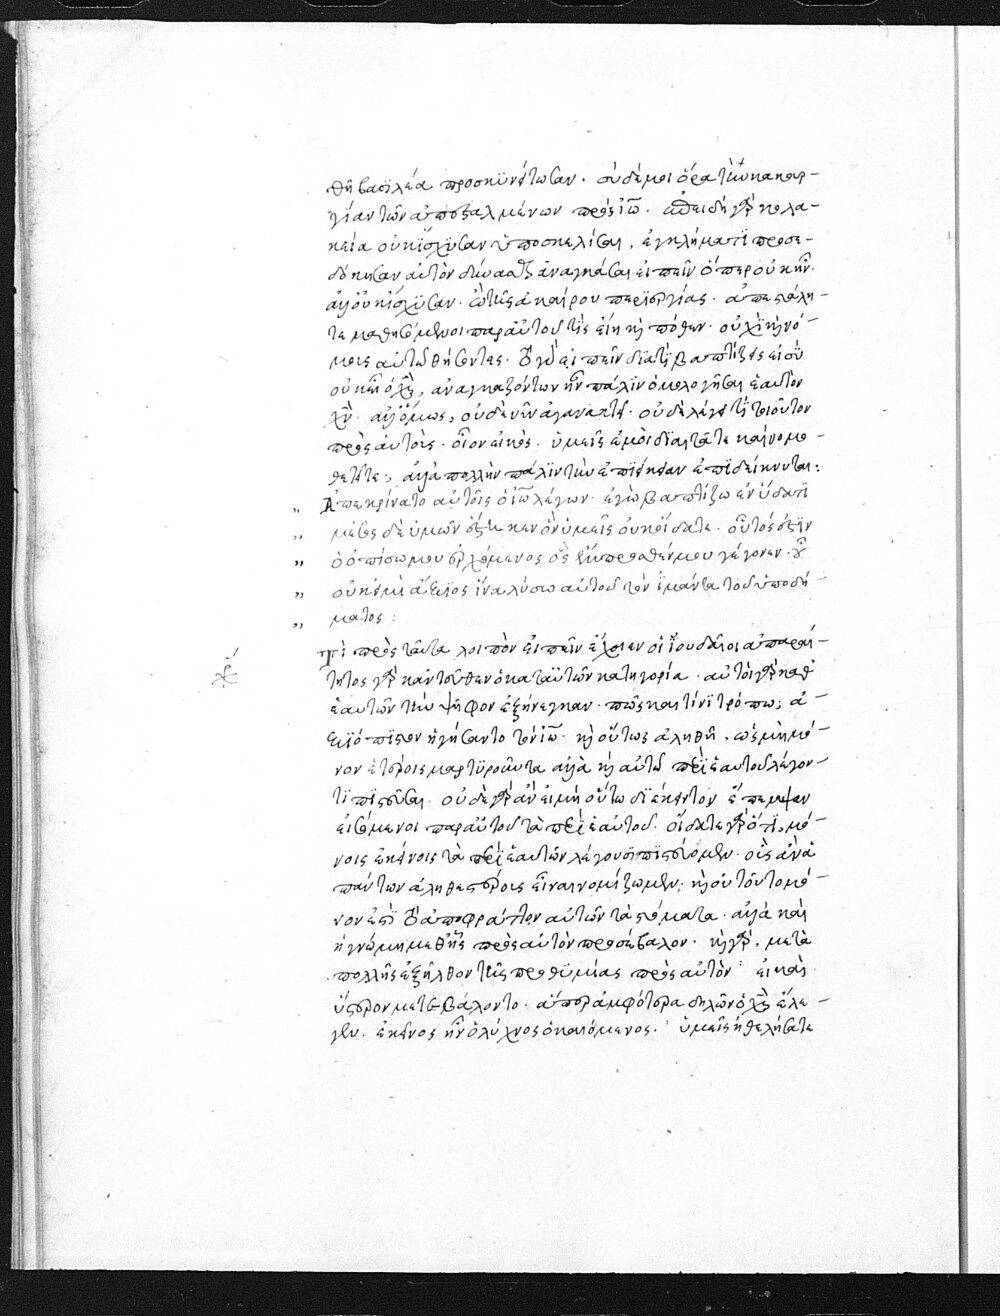 θῆ βασιλέα προσκυνήτωσαν. σὺ δέ μοι ὅρα τὴν κακουρ-
γίαν τῶν ἀποσταλμένων πρὸς ἰω̅. ἐπειδὴ γὰρ κολα-
κεία οὐκ ἴσχυσαν ὑποσκελίσαι, ἐγκλήματι προσε-
δόκησαν αὐτὸν ἀναγκάσαι εἰπεῖν ὅπερ οὐκ ἦν.
ἀλλ' οὐκ ἴσχυσαν. ὢ τῆς ἀκαίρου περιεργίας. ἀπεστάλη-
τε μαθησόμενοι παρ' αὐτοῦ τίς εἴη καὶ πόθεν. οὐχὶ καὶ νό-
μοις αὐτῶ θήσοντες. τὸ γὰρ εἰπεῖν διατί βαπτίζεις εἰ σὺ
οὐκ εἶ ὁ χ̅ς̅, ἀναγκαζόντων ἦν πάλιν ὁμολογῆσαι ἑαυτὸν
χ̅ν̅. ἀλλ' ὅμως, οὐδὲ νῦν ἀγανακτεῖ. οὐδὲ λέγει τί τοιοῦτον
πρὸς αὐτοὺς. οἷον εἰκὸς. ὑμεῖς ἐμοὶ διατάττετε καὶ νομο-
θετεῖτε; ἀλλὰ πολλὴν πάλιν τὴν ἐπιείκειαν ἐπιδείκνυται:
Ἀπεκρίνατο αὐτοῖς ὁ ἰω̅ λέγων. ἐγὼ βαπτίζω ἐν ὕδατι
μέσος δὲ ὑμῶν ἕστηκεν ὃν ὑμεῖς οὐκ οἴδατε. οὗτός ἐστιν
ὁ ὀπίσω μου ἐρχόμενος ὃς ἔμπροσθέν μου γέγονεν. οὗ
οὐκ εἰμὶ ἄξιος ἵνα λύσω αὐτοῦ τὸν ἱμάντα τοῦ ὑποδή-
ματος:
Τί πρὸς ταῦτα λοιπὸν εἰπεῖν ἔχοιεν οἱ ἰουδαῖοι ἀπαραί-
τητος γὰρ κἀντεῦθεν ὁ κατ' αὐτῶν κατηγορία. αὐτοὶ γὰρ καθ'
ἑαυτῶν τὴν ψῆφον ἐξήνεγκαν. πῶς καὶ τίνι τρόπω; ἀ-
ξιόπιστον ἡγήσαντο τὸν ἰω̅. καὶ οὕτως ἀληθῆ, ὡς μὴ μό-
νον ἑτέροις μαρτυροῦντα ἀλλὰ καὶ αὐτῶ περὶ ἑαυτοῦ λέγον-
τι πιστεῦσαι. οὐδὲ γὰρ ἂν εἰ μὴ οὕτω διέκειντο ἔπεμψαν
εἰσόμενοι παρ' αὐτοῦ τὰ περὶ ἑαυτοῦ. οἴδατε γὰρ ὅτι, μό-
νοις ἐκείνοις τὰ περὶ ἑαυτῶν λέγουσι πιστεύομεν. οὓς ἂν ἁ-
πάντων ἀληθεστέρους εἶναι νομίζωμεν. καὶ οὐ τοῦτο μό-
νον ἐστὶ τὸ ἀποφράττον αὐτῶν τὰ στόματα. ἀλλὰ καὶ
ἡ γνώμη μεθ' ἧς πρὸς αὐτὸν προσέβαλον. καὶ γὰρ, μετὰ
πολλῆς ἐξῆλθον τῆς προθυμίας πρὸς αὐτὸν εἰ καὶ
ὕστερον μετεβάλοντο. ἅπερ ἀμφότερα δηλῶν ὁ χ̅ς̅ ἔλε-
γεν. ἐκεῖνος ἦν ὁ λύχνος ὁ καιόμενος. ὑμεῖς ἠθελήσατε